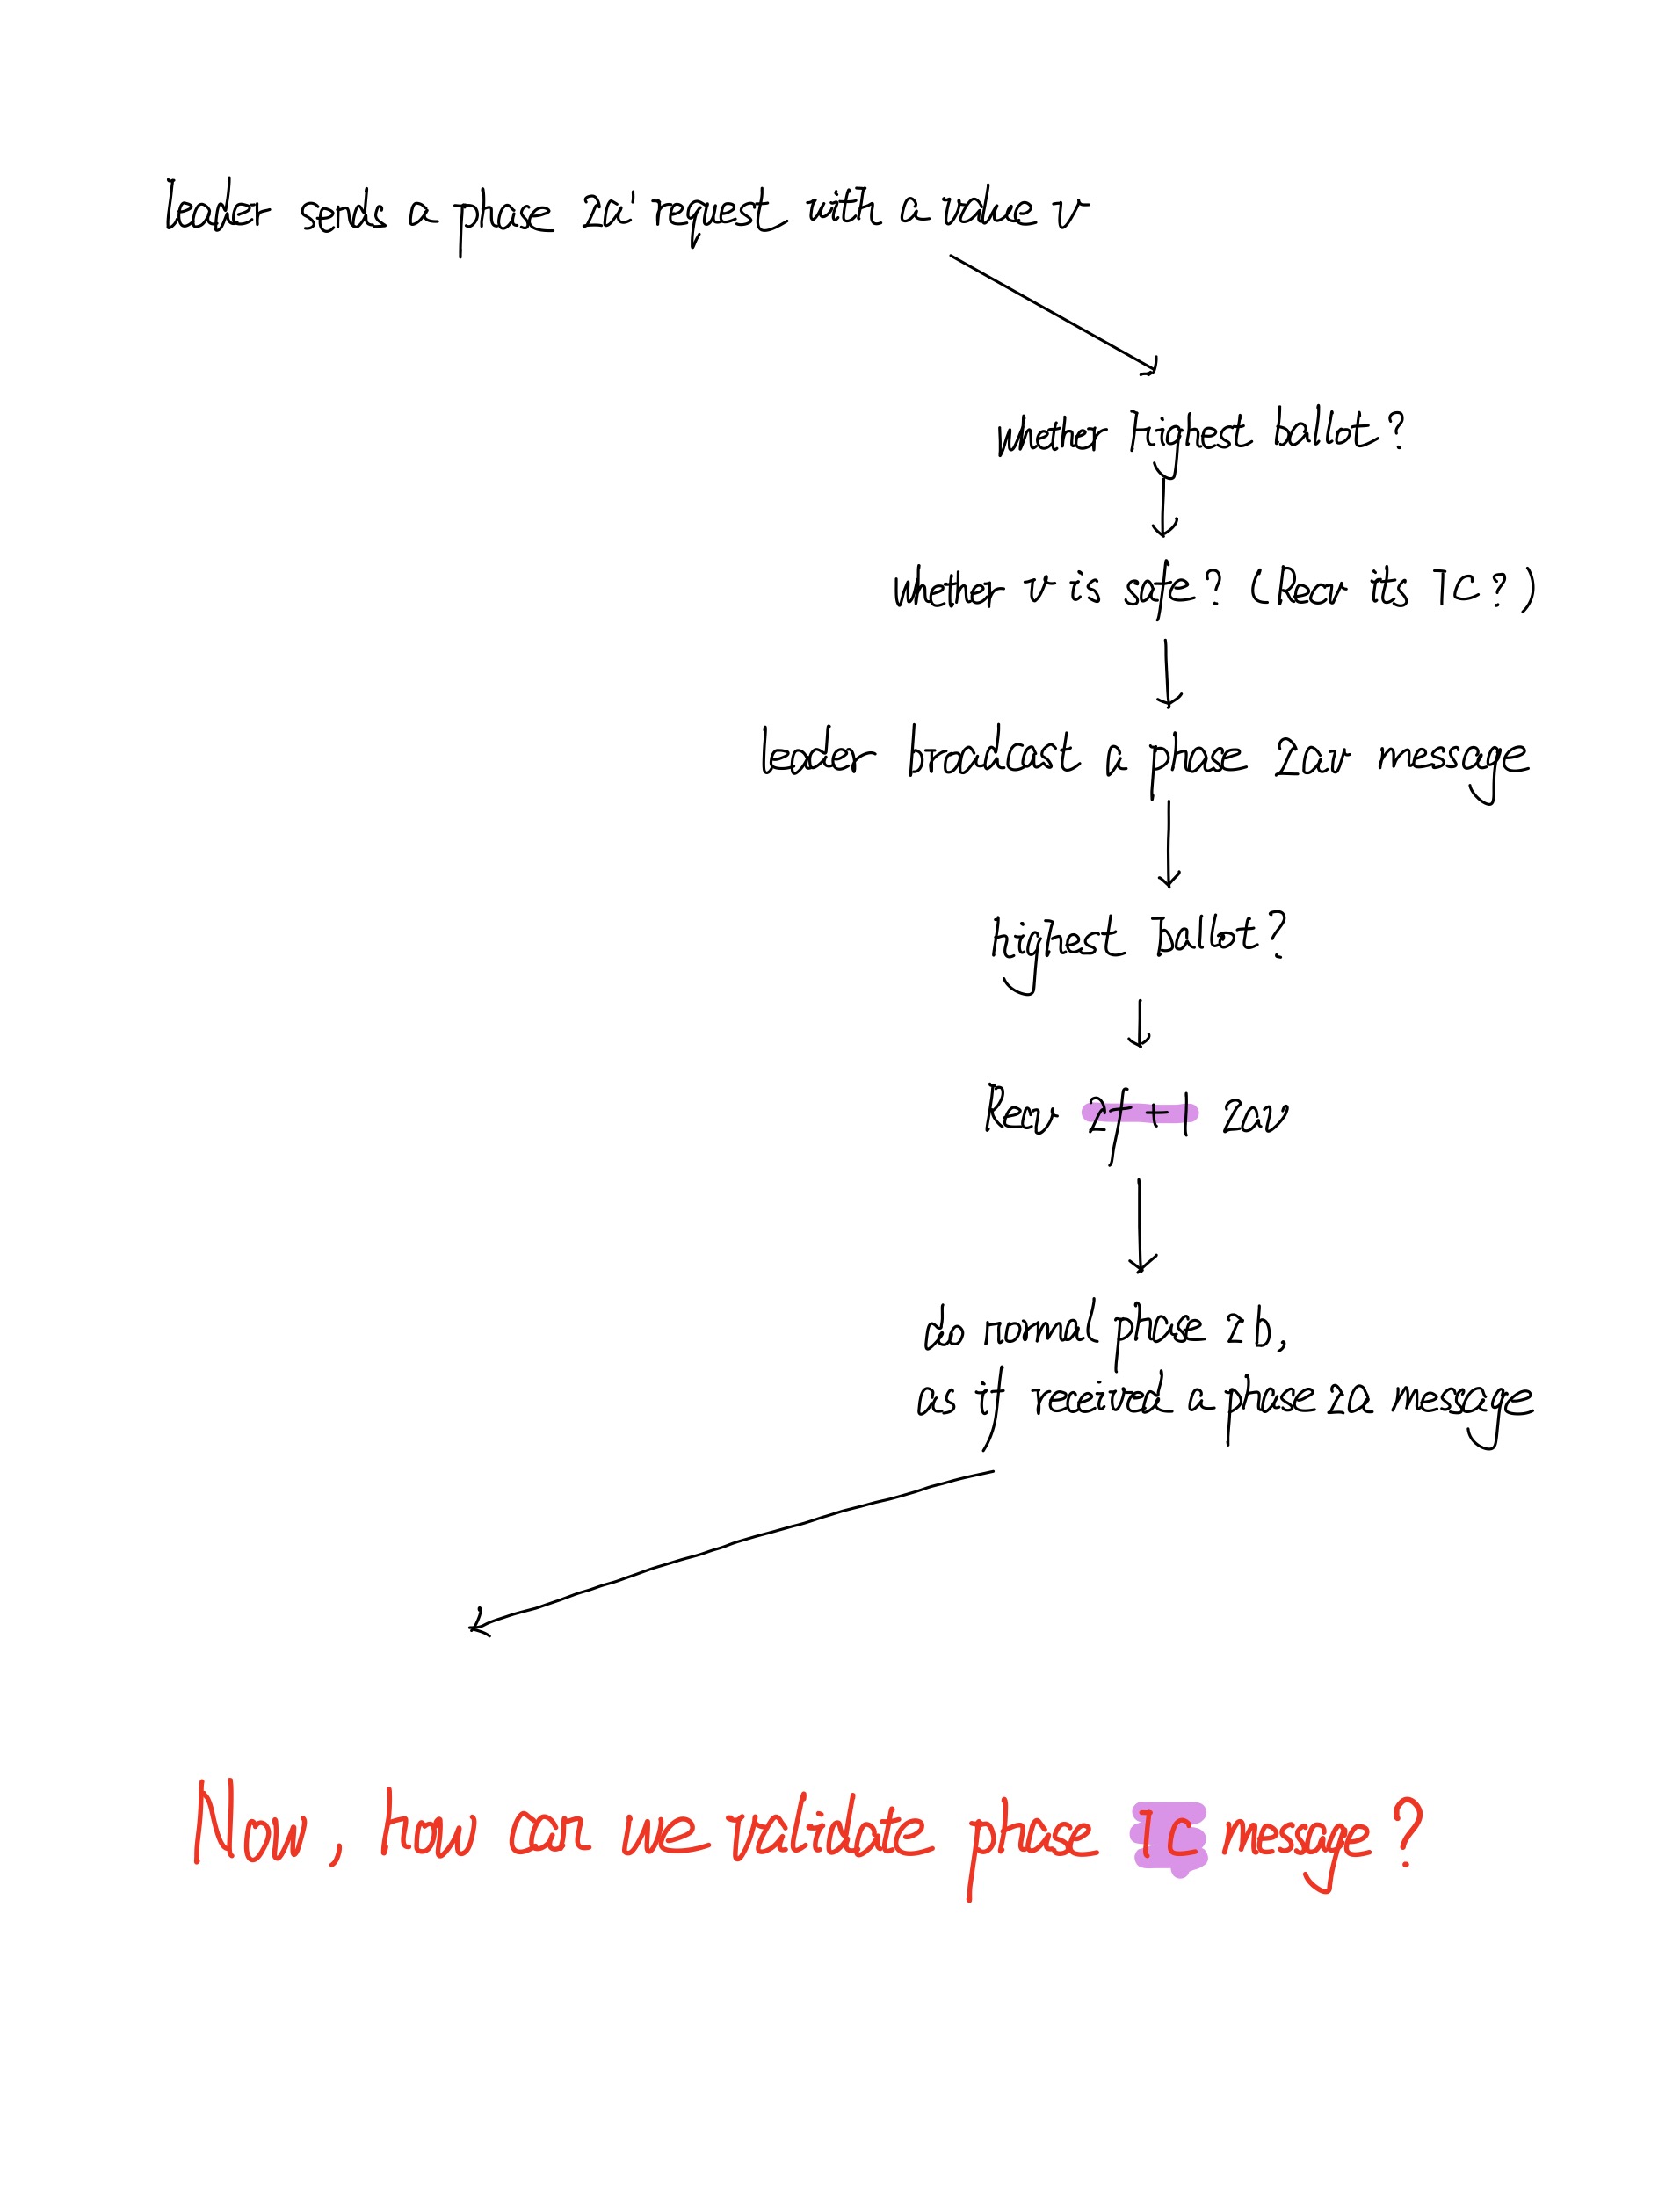 leader sends a phase 2a' request with a value v
whether highest ballot?
whether v is safe? (Recv its 1C?)
leader broadcast a phase 2av message
highest ballot?
Recv 2f+1 2av
do normal phase 2b,
as if received a phase 2a message
Now, how can we validate phase 1C message?